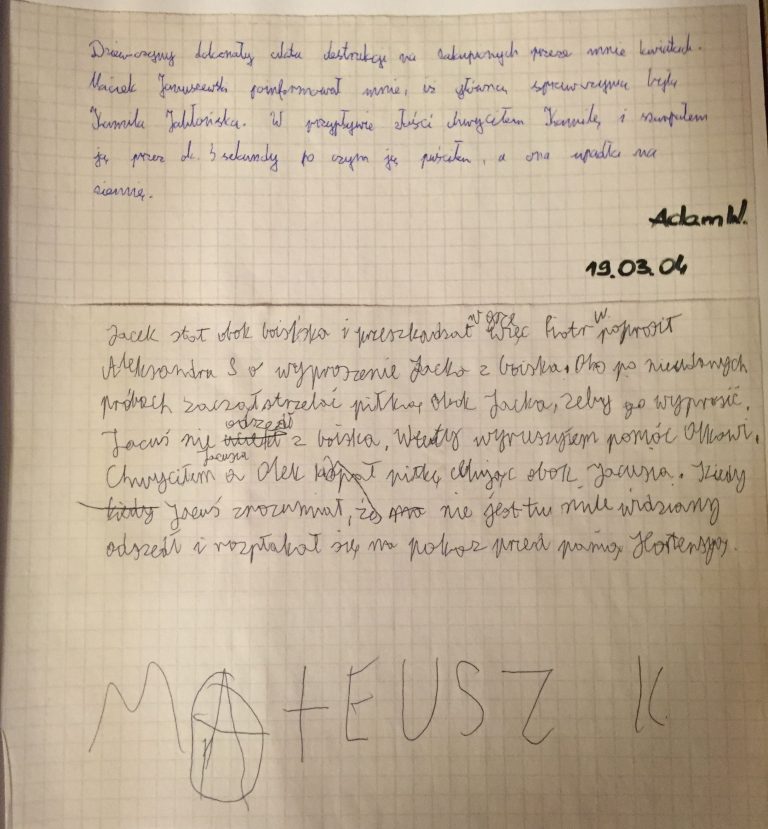 Dziewczyny dokonały aktu destrukcji na zakupionych przeze mnie kwiatach.
Maciek Januszewski poinformował mnie, iż główną sprawczynią była
Kamila Jabłońska. W przypływie złości chwyciłem Kamilę i szarpałem
ją przez ok. 3 sekundy po czym ją puściłem, a ona upadła na
ziemię.
Adam W.
19.03.04
Jacek stał obok boiska i przeszkadzał w grze więc Piotr W. poprosił
Aleksandra S o wyproszenie Jacka z boiska. Olo po nieudanych
próbach zaczął strzelać piłką obok Jacka, żeby go wyprosić.
Jacuś nie odszedł z boiska, Wtedy wyruszyłem pomóc Olkowi.
Chwyciłem Jacusia a Olek kopał piłkę celując obok Jacusia. Kiedy
kiedy Jacuś zrozumiał, że nie jest tu mile widziany
odszedł i rozpłakał się na pokaz przed panią Hortensją.
MAtEUSZ K.